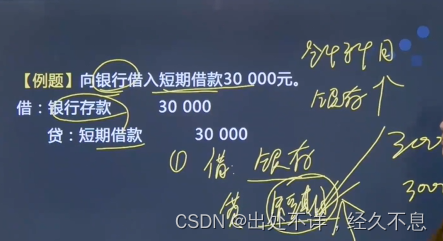 【例题】向银行借入短期借款30 000元。
借：银行存款 30 000
贷：短期借款 30 000
银存
① 借： 银存
300
300
CSDN @出处不详，经久不息